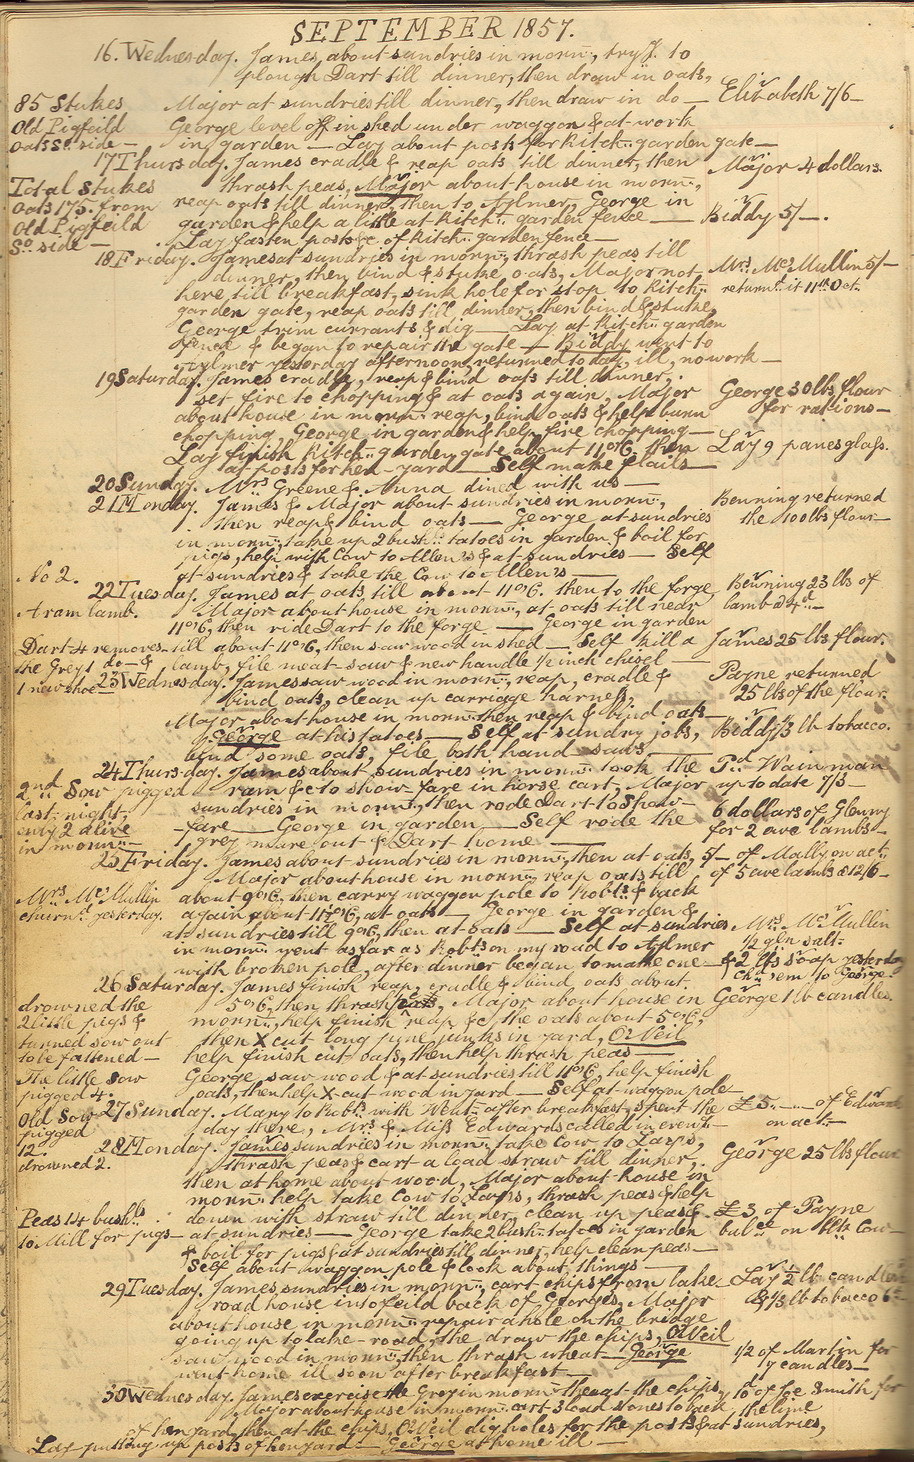 SEPTEMBER 1857.
16. Wednesday. James, about sundries in morn:, try J. to
plough Dart till dinner, then draw in oats,
85 Stukes Major at sundries till dinner, then draw in do — Elizabeth 7/6 —
Old Pigfeild George level off in shed under waggon & at work
Oats So. side — in garden — Lay about posts for kitch:: garden gate —
17 Thursday. James cradle & reap oats till dinner, then Major 4 dollars.
Total Stukes thrash peas, Major about house in morn::,
Oats 175. from reap oats till dinner, then to Aylmer, George in
Old Pigfeild garden & help a little at Kitch:: garden fence — Biddy 5/—.
So. side — Lay fasten posts &c of kitch:: garden fence —
18 Friday. James at sundries in morn::, thrash peas till
dinner, then bind & stuke oats, Major not Mrs. McMullin 5/—
here till breakfast, sink hole for stop to kitch:: return'd it 11th Oct.
garden gate, reap oats till dinner, then bind & stuke,
George trim currants & dig — Lay at kitch:: garden
fence & began to repair the gate — Biddy went to
Aylmer yesterday afternoon, returned to day, ill, no work —
19 Saturday. James cradle, reap & bind oats till dinner,
set fire to chopping & at oats again, Major George 30 lbs flour
about house in morn:: reap, bind oats & help burn for rations —
chopping, George in garden & help fire chopping —
Lay finish Kitch:: garden gate about 11 o'C, then Lay 9 panes glass.
at posts for hen-yard — Self make flails —
20 Sunday. Mrs Greene & Anna dined with us —
21 Monday. James & Major about sundries in morn::, Benning returned
then reap & bind oats — George at sundries the 100 lbs flour —
in morn:: take up 2 bush:: tatoes in garden & boil for
pigs, help with Cow to Allen's & at sundries — Self
No 2. at sundries & take the Cow to Allen's —
22 Tuesday. James at oats, till about 11 o'C. then to the forge Benning 23 lbs of
A ram lamb. Major about house in morn::, at oats till near lamb @ 4d —
11 o'C, then ride Dart to the forge — George in garden
Dart 4 removes till about 11 o'C, then saw wood in shed — Self kill a James 25 lbs flour.
the Grey 1 do — & lamb, file meat-saw & new handle 1/2 inch chisel —
1 new shoe 23 Wednesday. James saw wood in morn::, reap, cradle & Payne returned
bind oats, clean up carriage harness, 25 lbs of the flour.
Major about house in morn:: then reap & bind oats —
George at his tatoes — Self at sundry jobs, Biddy 1/3 lb tobacco.
bind some oats, file both hand saws —
24 Thursday. James about sundries in morn:: took the Pd Wainman
2nd Sow pigged ram &c to show-fare in horse cart, Major up to date 7/3 —
last night, sundries in morn::, then rode Dart to Show-
only 2 alive -fare — George in garden — Self rode the 6 dollars of Glenny
in morn:: — grey mare out & Dart home — for 2 ewe lambs —
25 Friday. James about sundries in morn::, then at oats, 5/— of Mally on act.
Major about house in morn::, reap oats till of 5 ewe lambs @ 12/6 —
Mrs McMullin about 9 o'C, then carry waggon pole to Robts. & back
churn'd yesterday. again about 11 1/2 o'C, at oats — George in garden &
at sundries till 9 o'C, then at oats — Self at sundries Mrs. McMullin
in morn:: went as far as Robts on my road to Aylmer 1/2 gln salt.
with broken pole, after dinner began to make one — & 2 lbs soap yesterday
26 Saturday. James finish reap, cradle & bind oats about
drowned the 5 o'C, then thrash peas, Major about house in George 1 lb candles.
2 little pigs & morn::, help finish reap &c the oats about 5 o'C,
turned sow out then X cut long pine junks in yard, O'Neil
to be fattened — help finish cut oats, then help thrash peas —
The little Sow George saw wood & at sundries till 11 o'C, help finish
pigged 4. oats, then help X-cut wood in yard — Self at waggon pole
Old Sow 27 Sunday. Mary to Robt. with Went: after breakfast, spent the £5 — of Edward
pigged day there, Mrs. & Miss Edwards called in even:: — on act. —
12. 28 Monday. James sundries in morn::, take Cow to Lasps, George 25 lbs flour
drowned 2. thrash peas & cart a load straw till dinner,
then at home about wood, Major about house in
morn:: help take Cow to Lasps, thrash peas & help
Peas 14 bushls. down with straw till dinner, clean up peas & £3, of Payne
to Mill for pigs — at sundries — George take 2 bush:: tatoes in garden bal:ce on blk Cow —
& boil for pigs & at sundries till dinner, help clean peas —
Self about waggon pole & look about things —
29 Tuesday. James, sundries in morn::, cart chips from lake- Lay 2 lb candles
road house into feild back of Georges, Major & 1/3 lb tobacco
about house in morn:: repair a hole on the bridge
going up to lake-road, the draw the chips, O'Neil
saw wood in morn::, then thrash wheat — George 1/2 of Martin for
went home ill soon after breakfast — candles —
30 Wednesday. James exercise the Grey in morn:: then at the chips, 10d of Joe Smith for
Major about house in morn:: cart 3 load stones to back the lime
of hen yard, then at the chips, O'Neil dig holes for the posts & at sundries,
Lay putting up posts of hen yard — George at home ill —